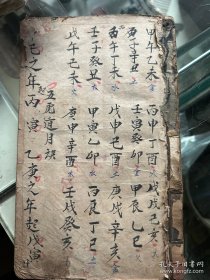 甲午乙未 丙申丁酉 戊戌己亥
庚子辛丑 壬寅癸卯 甲辰乙巳
丙午丁未水 戊申己酉 庚戌辛亥
壬子癸丑木 甲寅乙卯水 丙辰丁巳
戊午己未火 庚申辛酉木 壬戌癸亥
五虎遁月
己之年丙寅 乙庚之年起戊寅